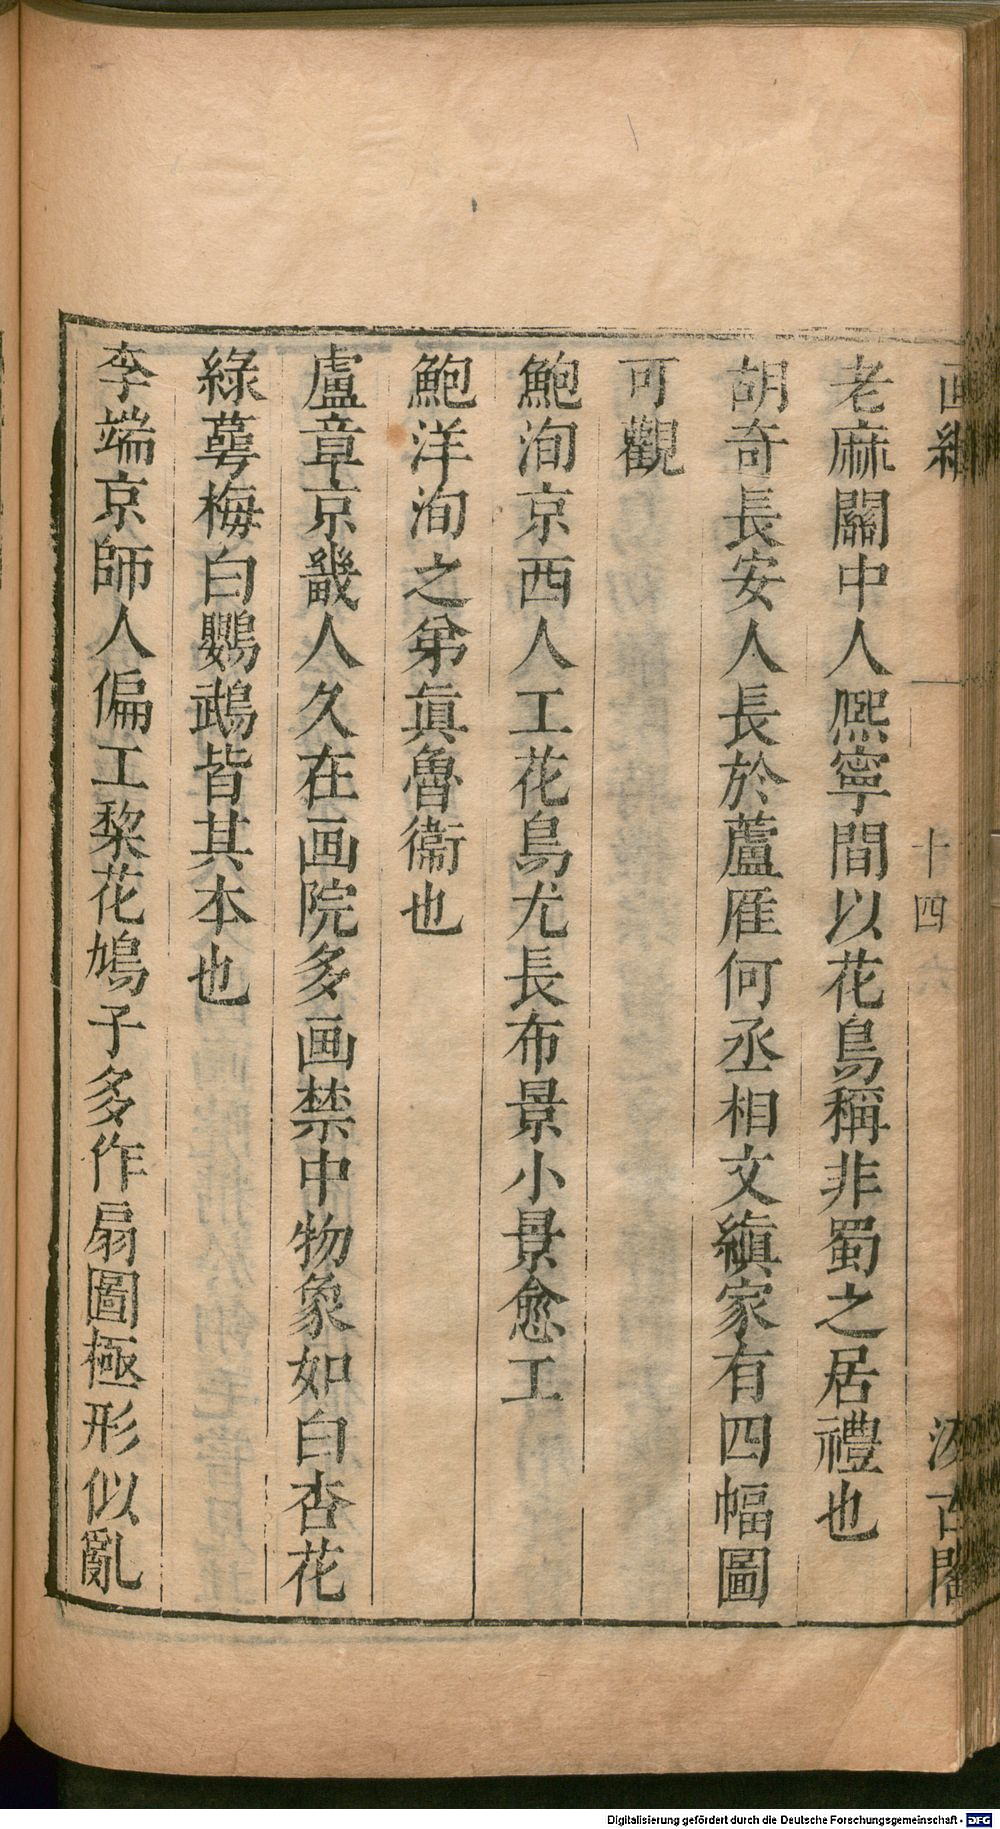 老麻關中人熈寧間以花鳥稱非蜀之居禮也
胡奇長安人長於蘆雁何丞相文縝家有四幅圖
可觀
鮑洵京西人工花鳥尤長布景小景愈工
鮑洋洵之弟眞魯衞也
盧章京畿人久在画院多画禁中物象如白杏花
綠萼梅白鸚鵡皆其本也
李端京師人偏工棃花鳩子多作扇圖極形似亂
十四
Digitalisierung gefördert durch die Deutsche Forschungsgemeinschaft - DFG